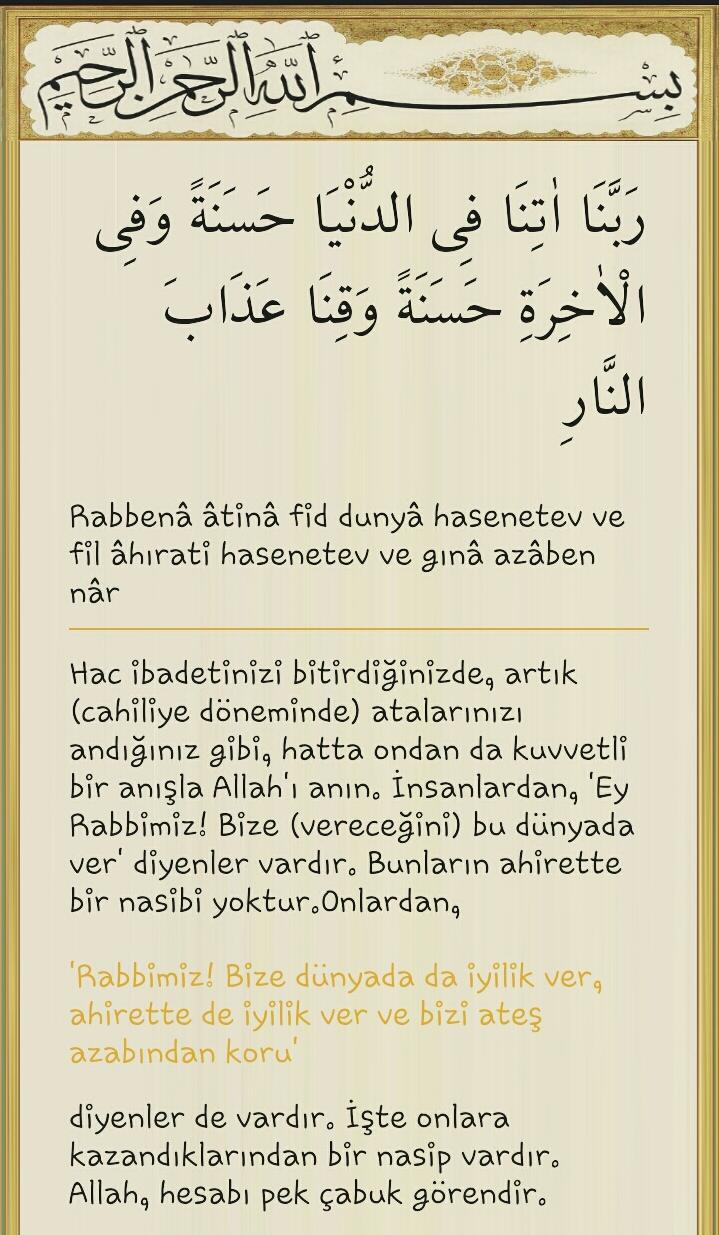 بِسْمِ اللّٰهِ الرَّحْمٰنِ الرَّحِيمِ
رَبَّنَا اٰتِنَا فِى الدُّنْيَا حَسَنَةً وَفِى
الْاٰخِرَةِ حَسَنَةً وَقِنَا عَذَابَ
النَّارِ
Rabbenâ âtinâ fid dunyâ hasenetev ve
fil âhırati hasenetev ve gınâ azâben
nâr
Hac ibadetinizi bitirdiğinizde, artık
(cahiliye döneminde) atalarınızı
andığınız gibi, hatta ondan da kuvvetli
bir anışla Allah'ı anın. İnsanlardan, 'Ey
Rabbimiz! Bize (vereceğini) bu dünyada
ver' diyenler vardır. Bunların ahirette
bir nasibi yoktur.Onlardan,
'Rabbimiz! Bize dünyada da iyilik ver,
ahirette de iyilik ver ve bizi ateş
azabından koru'
diyenler de vardır. İşte onlara
kazandıklarından bir nasip vardır.
Allah, hesabı pek çabuk görendir.